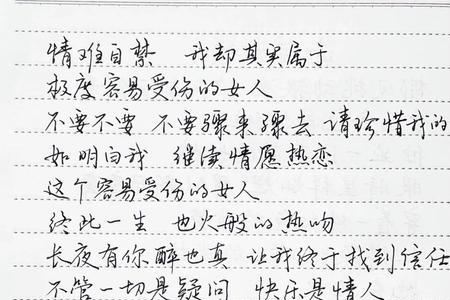 情难自禁 我却其实属于
极度容易受伤的女人
不要不要 不要骤来骤去 请珍惜我的
如明白我 继续情愿热恋
这个容易受伤的女人
终此一生 也火般的热吻
长夜有你醉也真 让我终于找到信任
不管一切是疑问 快乐是情人